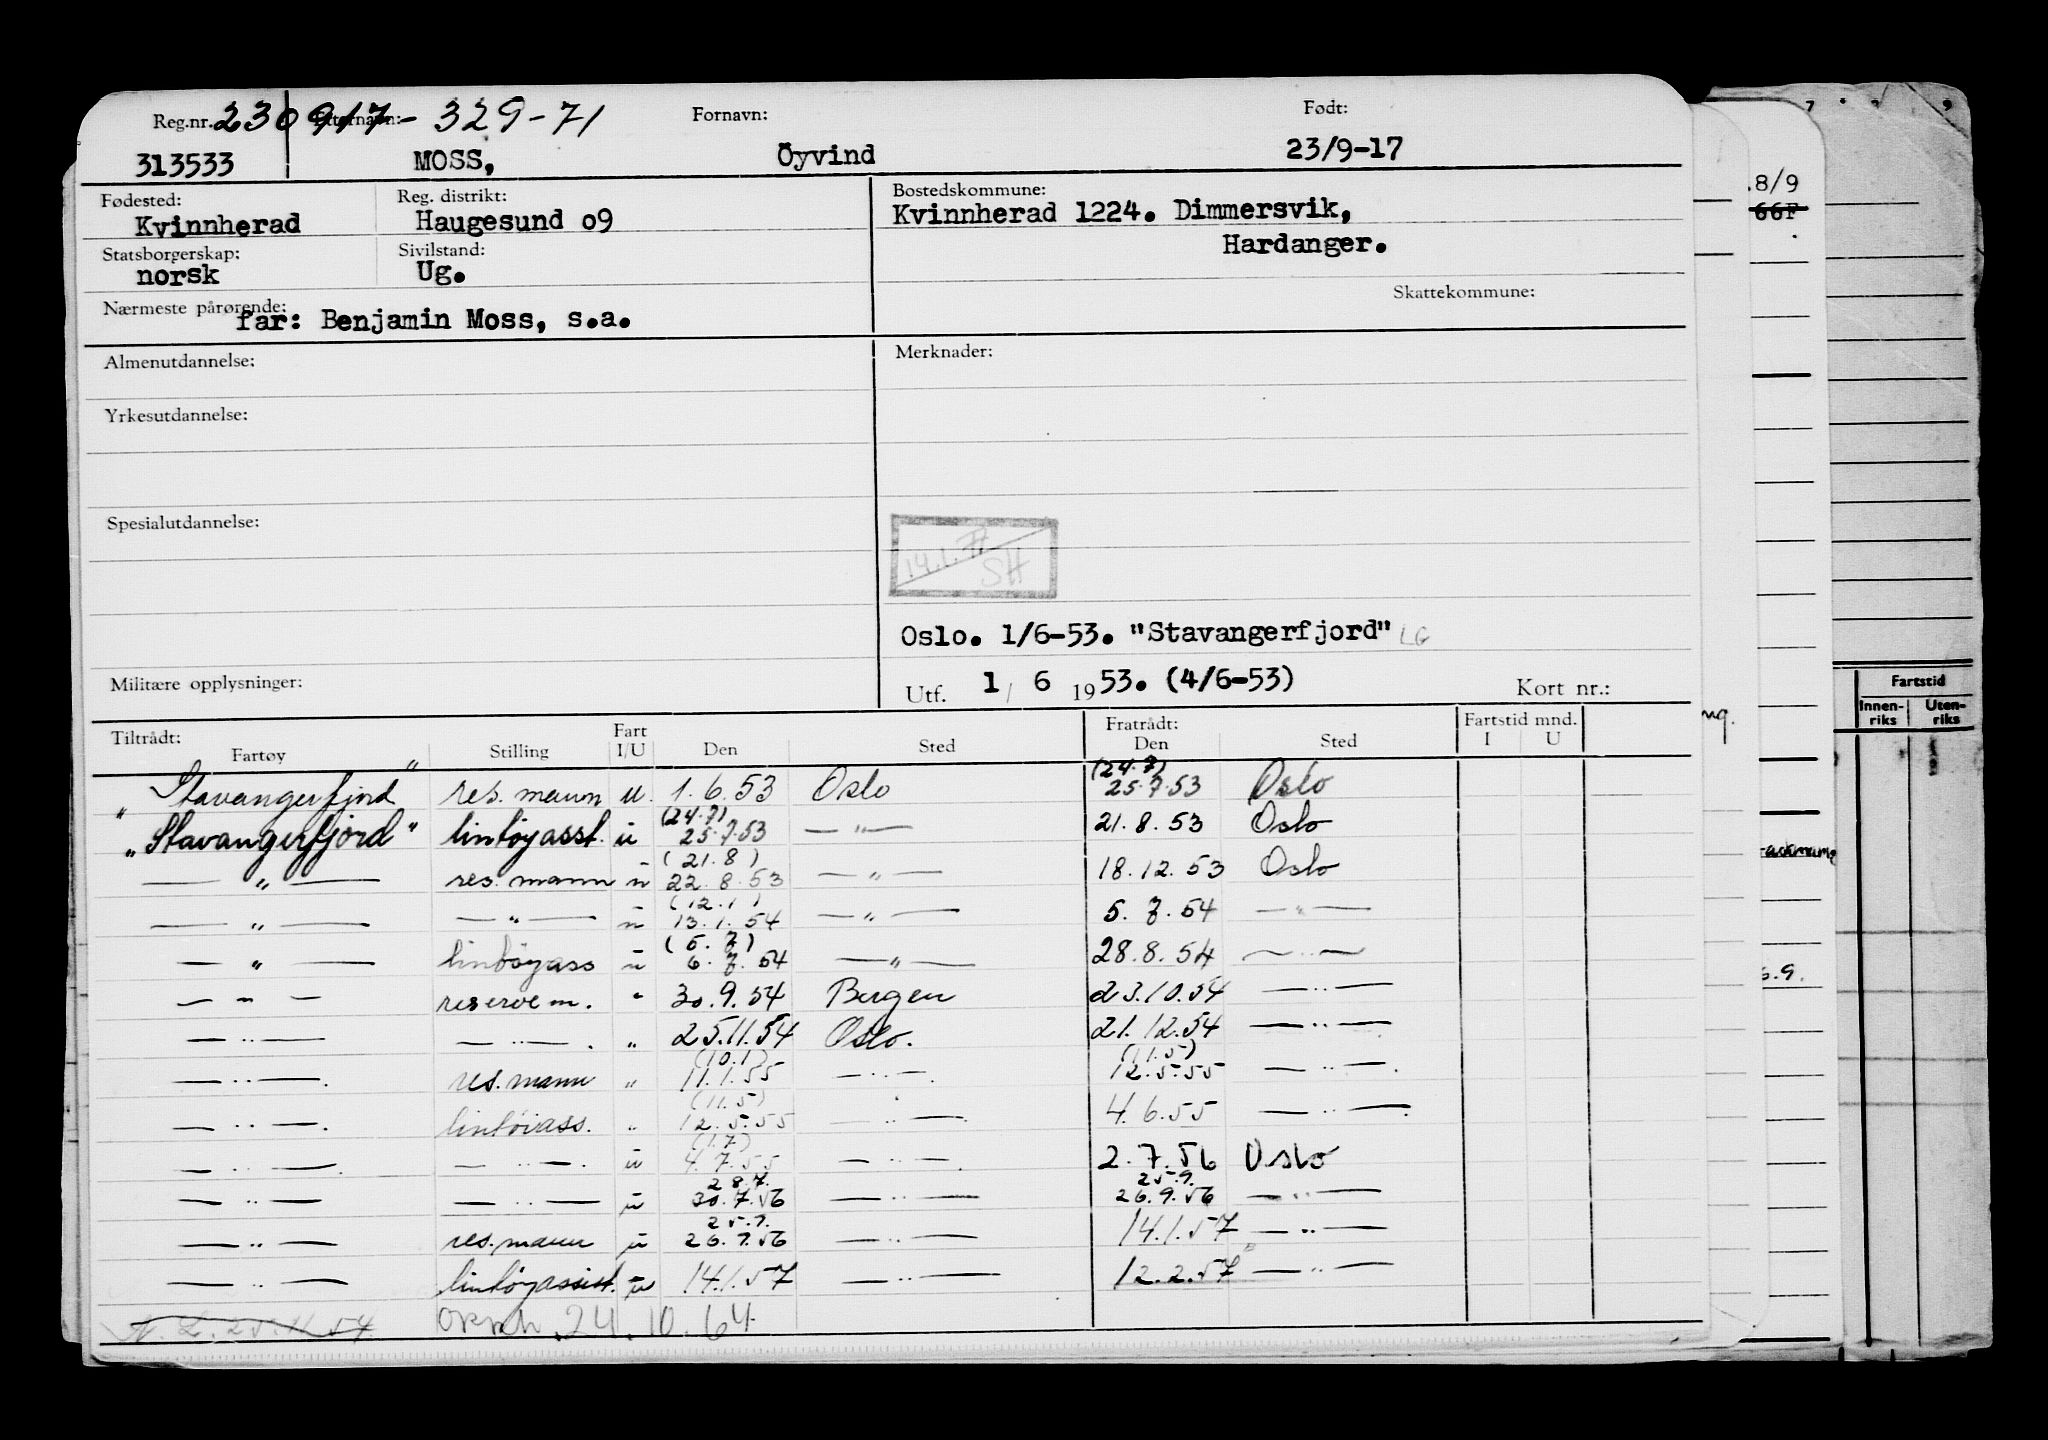 Reg.nr. Etternavn: 230917-329-71 Fornavn: Født:
313533 MOSS, Öyvind 23/9-17
Fødested: Reg. distrikt: Bostedskommune:
Kvinnherad Haugesund o9 Kvinnherad 1224. Dimmersvik,
Statsborgerskap: Sivilstand: Hardanger.
norsk Ug.
Skattekommune:
Nærmeste pårørende:
far: Benjamin Moss, s.a.
Almenutdannelse: Merknader:
Yrkesutdannelse:
Spesialutdannelse:
SH
Oslo. 1/6-53. "Stavangerfjord" LG
Militære opplysninger: Utf. 1/ 6 1953. (4/6-53) Kort nr.:
Tiltrådt: Fart Fratrådt: Fartstid mnd.
Fartøy Stilling I/U Den Sted Den Sted I U
"Stavangerfjord" res. mann u. 1.6.53 Oslo (24.7) 25.7.53 Oslo
"Stavangerfjord" lintøyasst. u (24.7) 25.7.53 — " — 21.8.53 Oslo
— " — res. mann u (21.8) 22.8.53 — " — 18.12.53 Oslo
— " — — " — u (12.1) 13.1.54 — " — 5.7.54 — " —
— " — lintøyass u (5.7) 6.7.54 — " — 28.8.54 — " —
— " — reserve m. " 30.9.54 Bergen 23.10.54 — " —
— " — — " — . " 25.11.54 Oslo. 21.12.54 — " —
— " — . res. mann " (10.1) 11.1.55 — " — . (11.5) 12.5.55 — " — .
— " — . lintøiass. " (11.5) 12.5.55 — " — 4.6.55 — " — .
— " — . — " — . u (1.7) 4.7.55 — " — . 2.7.56 Oslo
— " — — " — u 28.7. 30.7.56 — " — 25.9. 26.9.56 — " —
— " — res. mann u 25.9. 26.9.56 — " — 14.1.57 — " —
— " — lintøyassist. u 14.1.57 — " — 12.2.57 — " —
25.11.54 24.10.64
7 8 9
.8/9
66F
ng.
Fartstid
Innen-riks Uten-riks